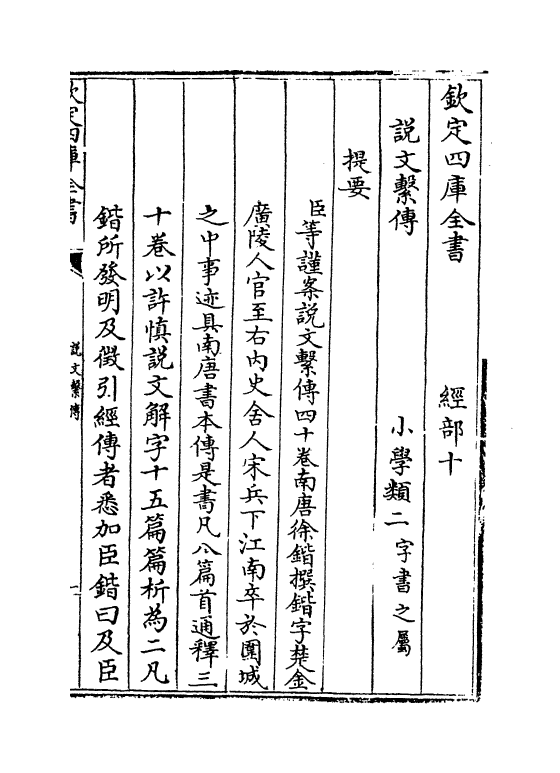 欽定四庫全書 經部十
說文繫傳 小學類二字書之屬
提要
臣等謹案說文繫傳四十卷南唐徐鍇撰鍇字楚金
廣陵人官至右內史舍人宋兵下江南卒於圍城
之中事迹具南唐書本傳是書凡八篇首通釋三
十卷以許慎說文解字十五篇篇析為二凡
鍇所發明及徵引經傳者悉加臣鍇曰及臣
欽定四庫全書
說文繫傳
一